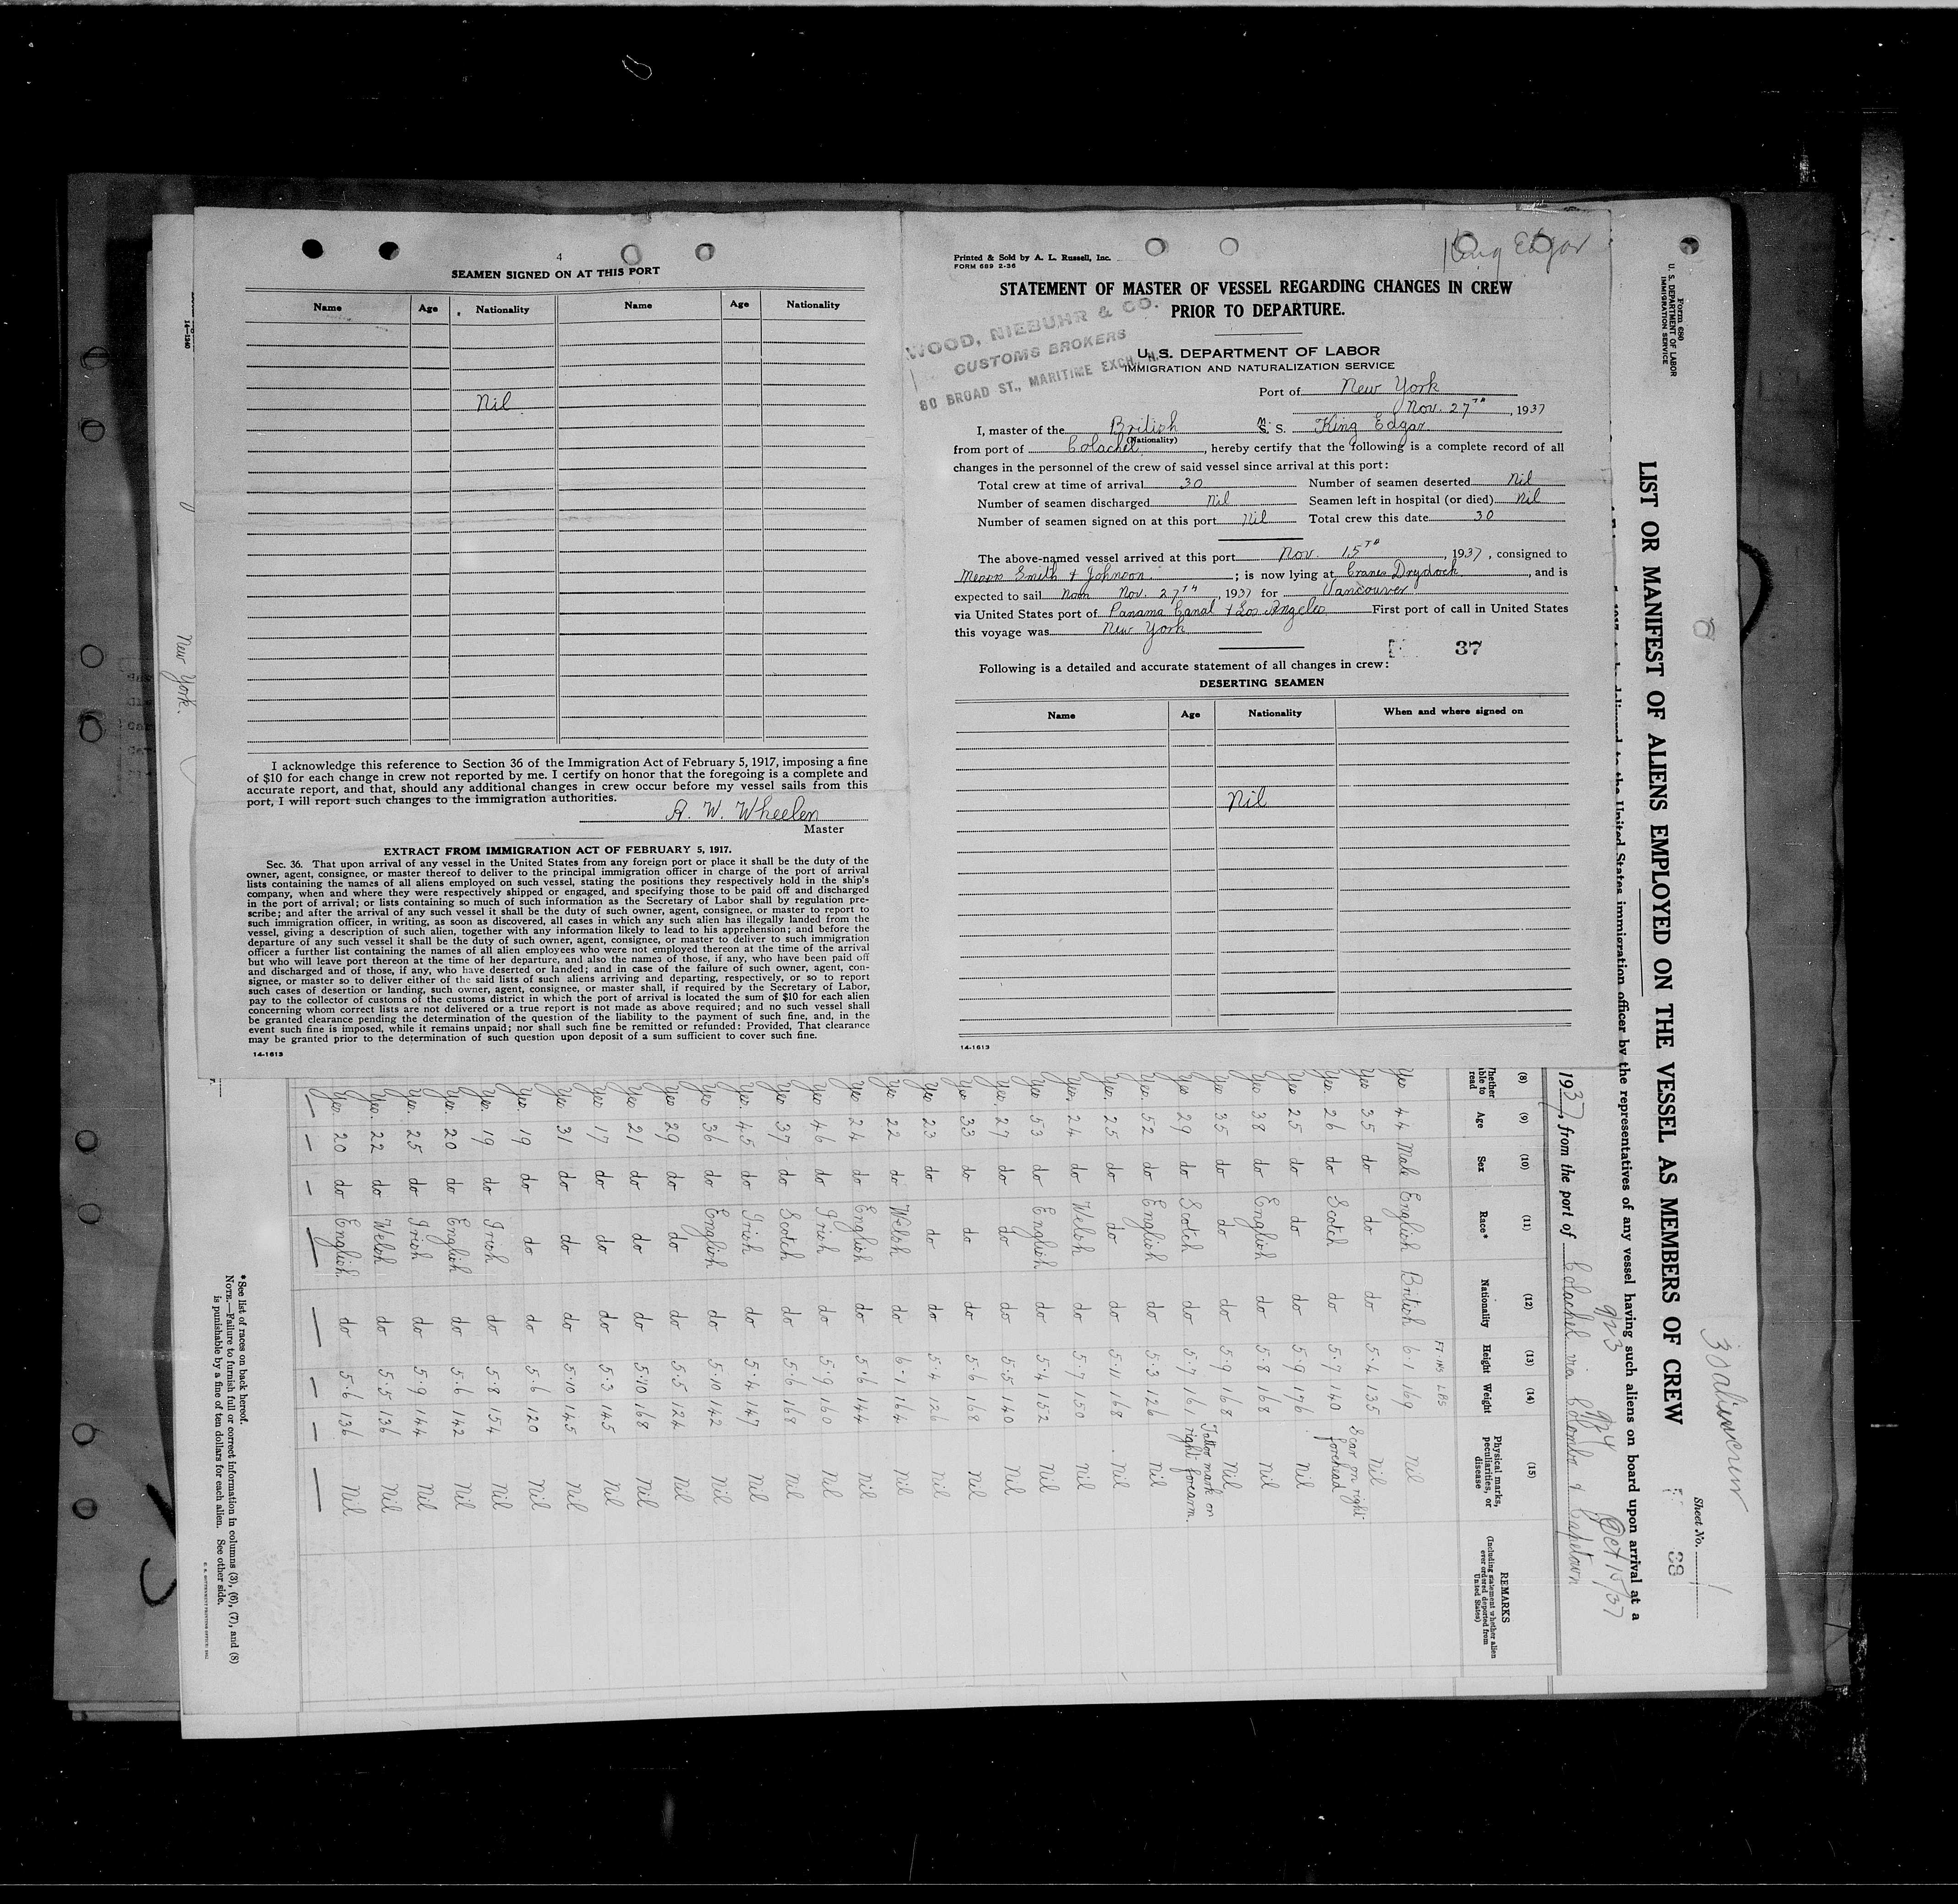 4
SEAMEN SIGNED ON AT THIS PORT
Name Age Nationality Name Age Nationality
Nil
I acknowledge this reference to Section 36 of the Immigration Act of February 5, 1917, imposing a fine
of $10 for each change in crew not reported by me. I certify on honor that the foregoing is a complete and
accurate report, and that, should any additional changes in crew occur before my vessel sails from this
port, I will report such changes to the immigration authorities.
A. W. Wheelen
Master
EXTRACT FROM IMMIGRATION ACT OF FEBRUARY 5, 1917.
Sec. 36. That upon arrival of any vessel in the United States from any foreign port or place it shall be the duty of the
owner, agent, consignee, or master thereof to deliver to the principal immigration officer in charge of the port of arrival
lists containing the names of all aliens employed on such vessel, stating the positions they respectively hold in the ship's
company, when and where they were respectively shipped or engaged, and specifying those to be paid off and discharged
in the port of arrival; or lists containing so much of such information as the Secretary of Labor shall by regulation pre-
scribe; and after the arrival of any such vessel it shall be the duty of such owner, agent, consignee, or master to report to
such immigration officer, in writing, as soon as discovered, all cases in which any such alien has illegally landed from the
vessel, giving a description of such alien, together with any information likely to lead to his apprehension; and before the
departure of any such vessel it shall be the duty of such owner, agent, consignee, or master to deliver to such immigration
officer a further list containing the names of all alien employees who were not employed thereon at the time of the arrival
but who will leave port thereon at the time of her departure, and also the names of those, if any, who have been paid off
and discharged and of those, if any, who have deserted or landed; and in case of the failure of such owner, agent, con-
signee, or master so to deliver either of the said lists of such aliens arriving and departing, respectively, or so to report
such cases of desertion or landing, such owner, agent, consignee, or master shall, if required by the Secretary of Labor,
pay to the collector of customs of the customs district in which the port of arrival is located the sum of $10 for each alien
concerning whom correct lists are not delivered or a true report is not made as above required; and no such vessel shall
be granted clearance pending the determination of the question of the liability to the payment of such fine, and, in the
event such fine is imposed, while it remains unpaid; nor shall such fine be remitted or refunded: Provided, That clearance
may be granted prior to the determination of such question upon deposit of a sum sufficient to cover such fine.
14-1613
King Edgar
Printed & Sold by A. L. Russell, Inc.
FORM 689 2-36
STATEMENT OF MASTER OF VESSEL REGARDING CHANGES IN CREW
PRIOR TO DEPARTURE.
WOOD, NIEBUHR & CO.
CUSTOMS BROKERS
80 BROAD ST., MARITIME EXCH. N.
U. S. DEPARTMENT OF LABOR
IMMIGRATION AND NATURALIZATION SERVICE
Port of New York
Nov. 27TH, 1937
I, master of the British M. S. King Edgar
(Nationality)
from port of Colachel, hereby certify that the following is a complete record of all
changes in the personnel of the crew of said vessel since arrival at this port:
Total crew at time of arrival 30 Number of seamen deserted Nil
Number of seamen discharged Nil Seamen left in hospital (or died) Nil
Number of seamen signed on at this port Nil Total crew this date 30
The above-named vessel arrived at this port Nov. 15TH, 1937, consigned to
Messrs Smith & Johnson; is now lying at Cranes Drydock, and is
expected to sail Noon Nov. 27TH, 1937 for Vancouver
via United States port of Panama Canal & Los Angeles First port of call in United States
this voyage was New York
37
Following is a detailed and accurate statement of all changes in crew:
DESERTING SEAMEN
Name Age Nationality When and where signed on
Nil
14-1613
Form 680
U. S. DEPARTMENT OF LABOR
IMMIGRATION SERVICE
30 alien crew
Sheet No. 1
38
LIST OR MANIFEST OF ALIENS EMPLOYED ON THE VESSEL AS MEMBERS OF CREW
delivered to the United States immigration officer by the representatives of any vessel having such aliens on board upon arrival at a
9/23 9/24 Oct 15/37
1937, from the port of Colachel via Colombo & Capetown
(8) (9) (10) (11) (12) (13) (14) (15)
Whether able to read Age Sex Race* Nationality Height Weight Physical marks, peculiarities, or disease REMARKS (Including statement whether alien ever ordered deported from United States)
FT INS LBS
Yes 44 Male English British 6·1 169 Nil
Yes 35 do do do 5·4 135 Nil
Yes. 26 do Scotch do 5·7 140 Scar on right forehead
Yes 25 do do do 5·9 176 Nil
Yes 38 do English do 5·8 168 Nil
Yes 35 do do do 5·9 168 Nil
Yes 29 do Scotch do 5·7 161 Tattoo mark on right forearm.
Yes. 52 do English do 5·3 126 Nil
Yes. 25 do do do 5·11 168 Nil
Yes, 24 do Welsh do 5·7 150 Nil
Yes 53 do English do 5·4 152 Nil
Yes, 27 do do do 5·5 140 Nil
Yes 33 do do do 5·6 168 Nil
Yes 23 do do do 5·4 126 Nil
Yes 22 do Welsh do 6·1 164 Nil
Yes 24 do English do 5·6 144 Nil
Yes 46 do Irish do 5·9 160 Nil
Yes 37 do Scotch do 5·6 168 Nil
Yes. 45 do Irish do 5·4 147 Nil
Yes 36 do English do 5·10 142 Nil
Yes 29 do do do 5·5 124 Nil
Yes 21 do do do 5·10 168 Nil
Yes 17 do do do 5·3 145 Nil
Yes 31 do do do 5·10 145 Nil
Yes. 19 do do do 5·6 120 Nil
Yes. 19 do Irish do 5·8 154 Nil
Yes. 20 do English do 5·6 142 Nil
Yes. 25 do Irish do 5·9 144 Nil
Yes. 22 do Welsh do 5·5 136 Nil
Yes. 20 do English do 5·6 136 Nil
*See list of races on back hereof.
NOTE.—Failure to furnish full or correct information in columns (3), (6), (7), and (8)
is punishable by a fine of ten dollars for each alien. See other side.
14-1240
New York.